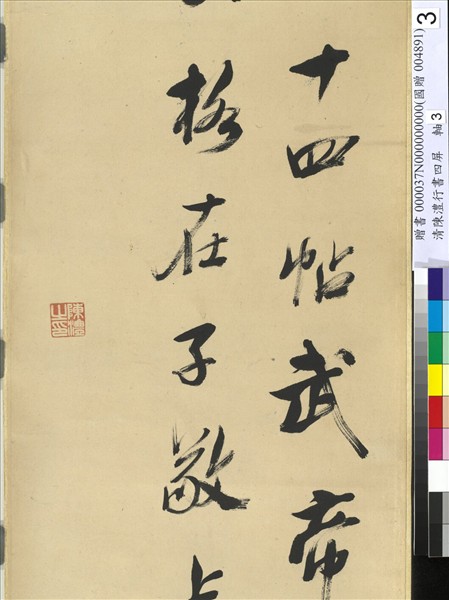 十四帖武帝
格在子敬上
陳澧之印
贈書 000037N000000000(國贈 004891)
清陳澧行書四屏 軸3
3